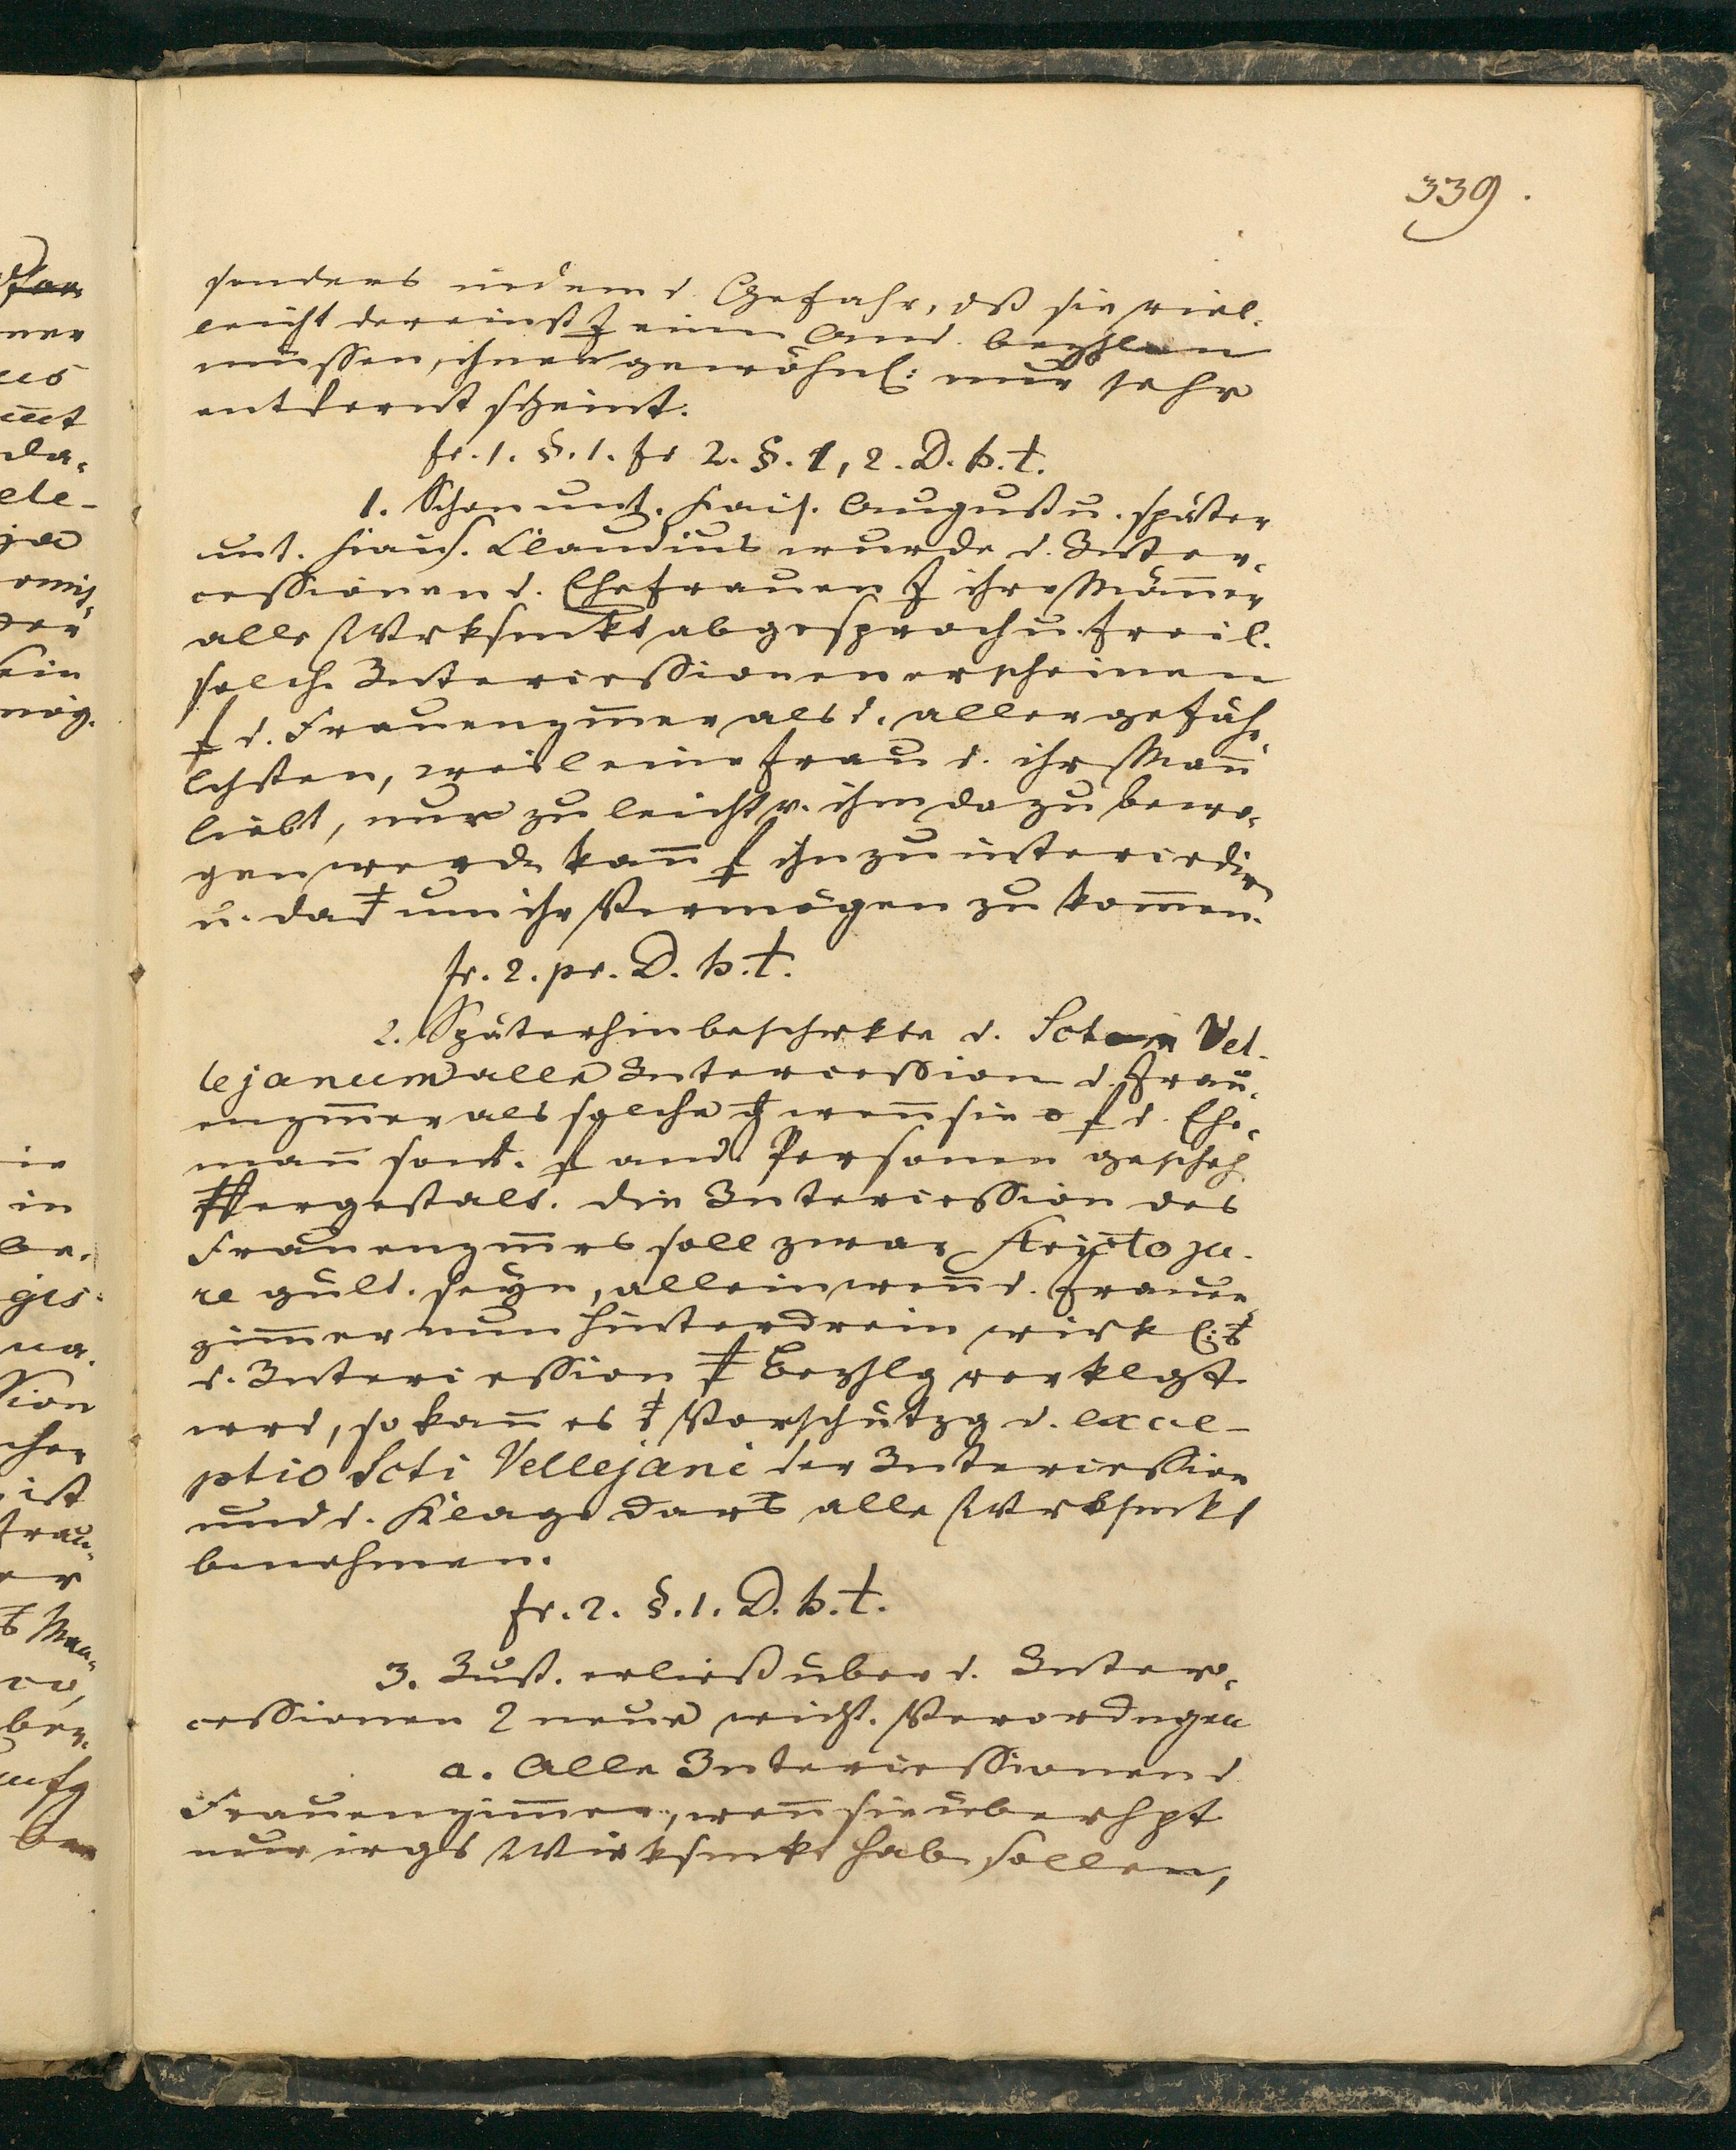 339.
sonders indem d. Gefahr, dß sie viel-
leicht dereinst f einen And. bezhlen
müssen, ihnen gewöhnl: nur sehr
entfernt scheint.
fr. 1. §. 1. fr 2. §. 1, 2. D. h. t.
1. Schon unt. Kais. August u. später
unt. Kais. Claudius wurde d. Inter-
cessionen d. Ehefrauen f ihre Männer
alle Wrksmkt abgesproch u. freil.
solch. Intercessionen erscheinen
f d. Frauenzimer als d. allergefähr-
lchsten, weil eine Frau d. ihr Mañ
liebt, nur zu leicht v. ihm dazu bewo-
gen werd. kañ f ihn zu intercedir
u. da um ihr Vermögen zu komen.
fr. 2. pr. D. h. t.
2. Späterhin beschrkte d. Sctum Vel-
lejanum alle Intercession d. Frau-
enzimer als solche weñ sie o f d. Ehe-
mañ sond. f and. Personen gescheh
dergestalt. die Intercession des
Frauenzimrs soll zwar stricto ju-
re gült. seyn, allein weñ d. Frauen-
zimer nun hinterdrein wirkl:
d. Intercession Bezhlg verklgt
wrd, so kañ es Vorschützg d. exce-
ptio Scti Vellejani der Intercession
und d. Klage daraus alle Wrksmkt
benehmen.
fr. 2. §. 1. D. h. t.
3. Just. erließ über d. Inter-
cessionen 2 neue wicht. Verordngen
a. Alle Intercessionen d.
Frauenzimer, weñ sie überhpt
nur irgds Wirksmkt hab. sollen,